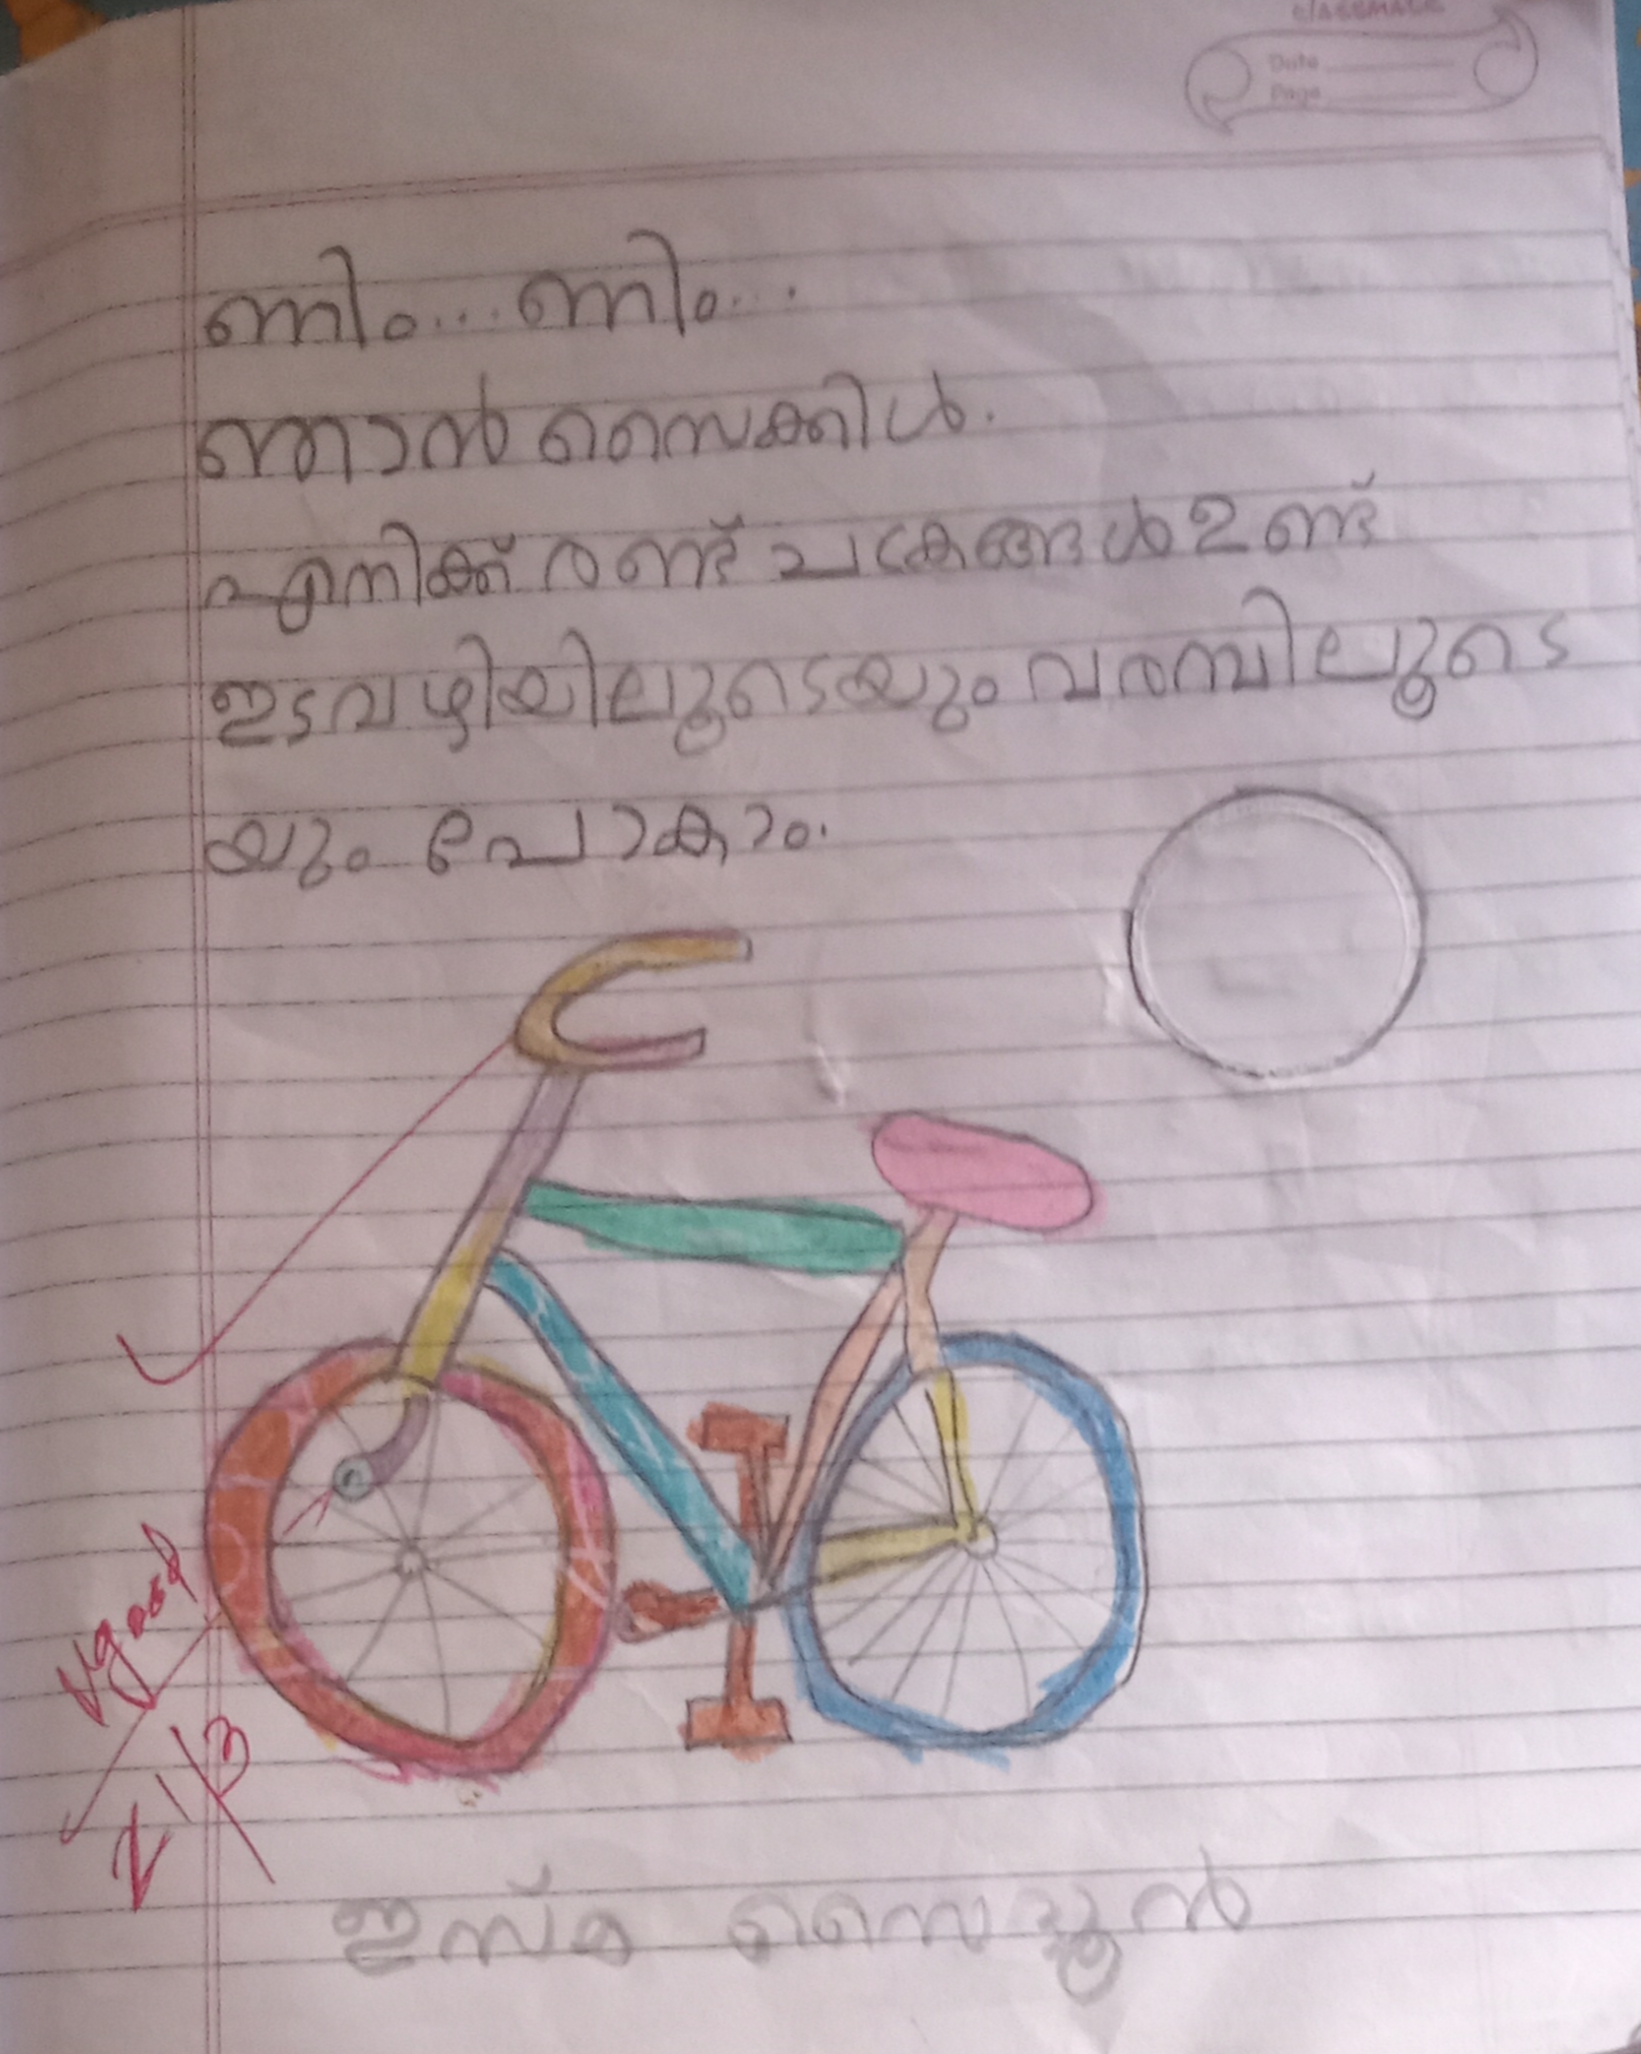 classmate
Date
Page
ണിം... ണിം...
ഞാൻ സൈക്കിൾ.
എനിക്ക് രണ്ട് ചക്രങ്ങൾ ഉണ്ട്
ഇടവഴിയിലൂടെയും വരമ്പിലൂടെ
യും പോകാം.
Vgood
21/3
ഇസ്മ